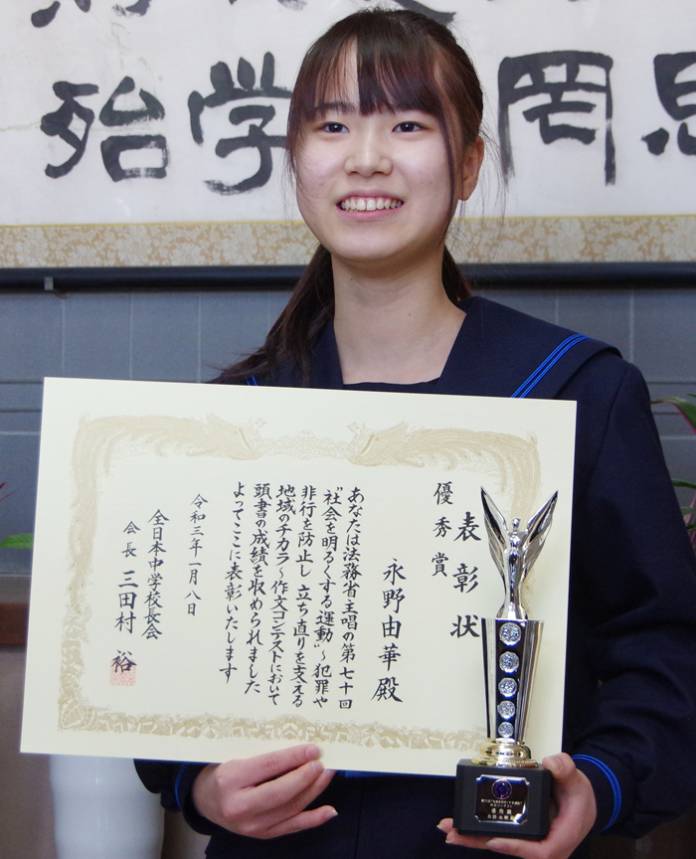 思
罔
学
殆
表彰状
優秀賞
永野由華 殿
あなたは法務省主唱の第七十回
"社会を明るくする運動"～犯罪や
非行を防止し 立ち直りを支える
地域のチカラ～作文コンテストにおいて
頭書の成績を収められました
よってここに表彰いたします
令和三年一月八日
全日本中学校長会
会長 三田村 裕